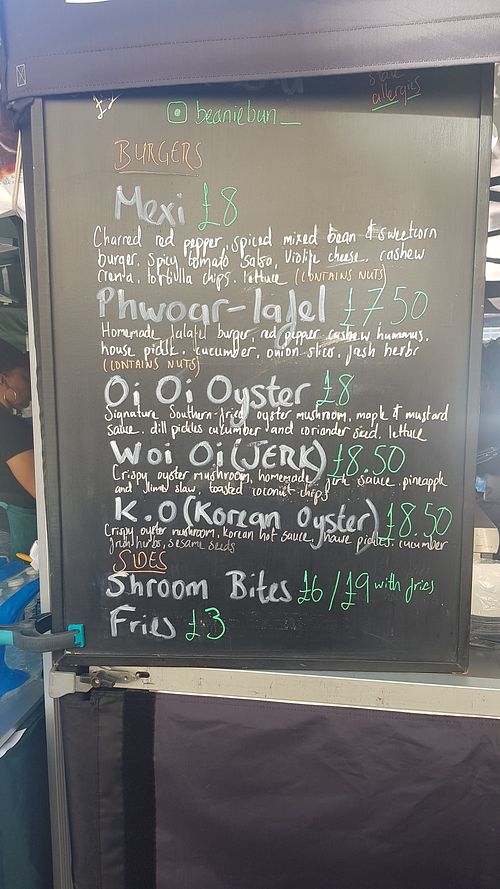 state
allergies
beaniebun_
BURGERS
Mexi £8
Charred red pepper, spiced mixed bean & sweetcorn
burger, spicy tomato salsa, Violife cheese, cashew
crema, tortilla chips, lettuce (CONTAINS NUTS)
Phwoar-lafel £7.50
Homemade falafel burger, red pepper cashew hummus,
house pickle, cucumber, onion slices, fresh herbs
(CONTAINS NUTS)
Oi Oi Oyster £8
Signature Southern-fried oyster mushroom, maple & mustard
sauce, dill pickled cucumber and coriander seed, lettuce
Woi Oi (JERK) £8.50
Crispy oyster mushroom, homemade jerk sauce, pineapple
and lime slaw, toasted coconut chips
K.O (Korean Oyster) £8.50
Crispy oyster mushroom, korean hot sauce, house pickles, cucumber
fresh herbs, sesame seeds
SIDES
Shroom Bites £6/£9 with fries
Fries £3